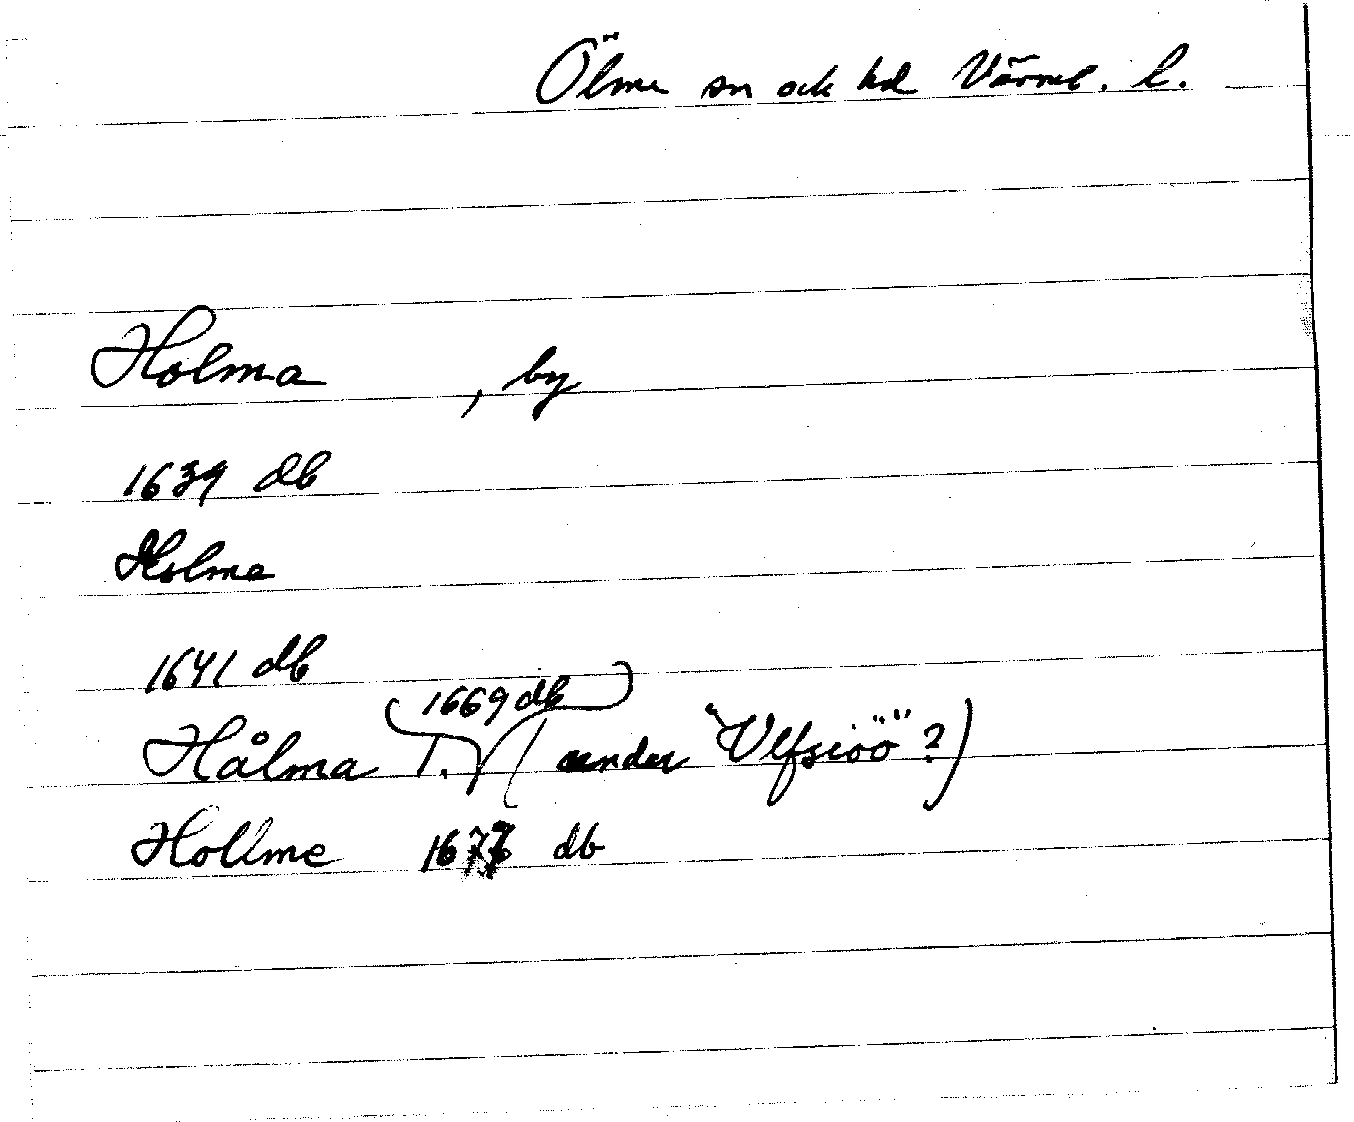 Ölme sn och hd Värml. l.
Holma , by
1639 db
Holma
1641 db
1669 db
Hålma (under "Ulfsiöö"?)
Hollme 1677 db